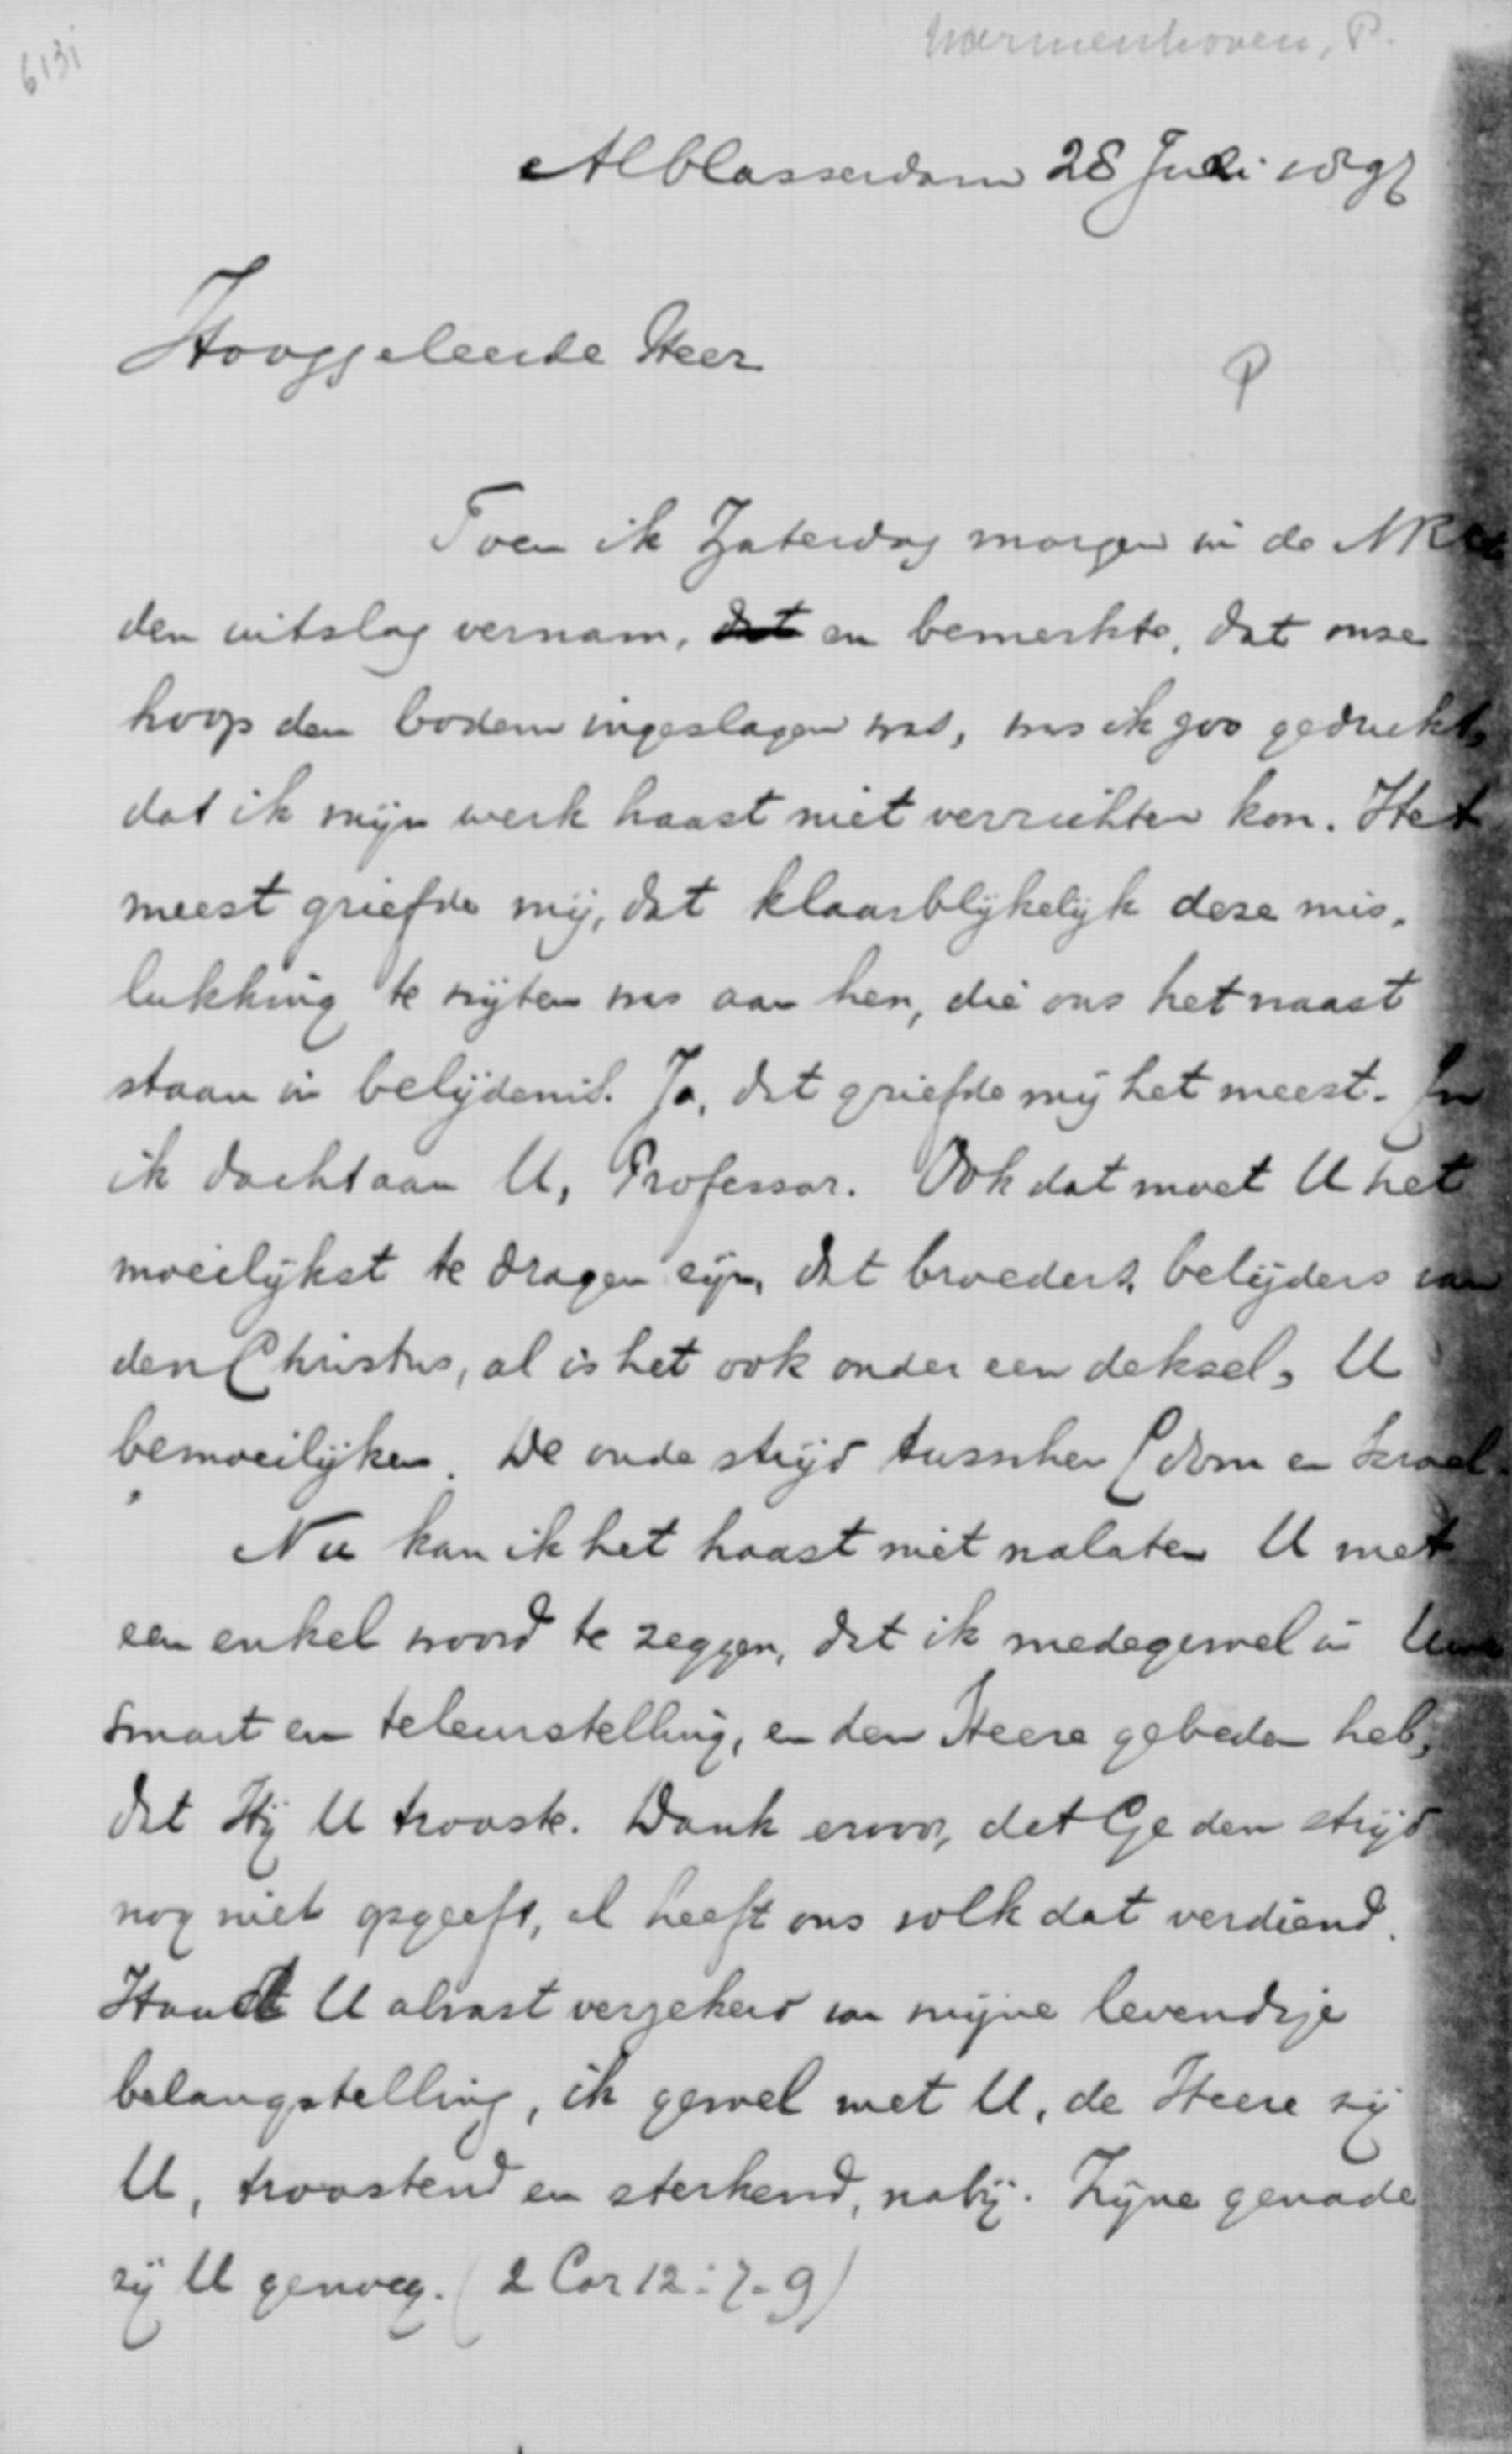 6131
Warmenhoven, P.
Alblasserdam 28 Juli 1897
Hooggeleerde Heer
P
Toen ik Zaterdag morgen in de NRCt
den uitslag vernam, en bemerkte, dat onze
hoop den bodem ingeslagen was, was ik zoo gedrukt,
dat ik mijn werk haast niet verrichten kon. Het
meest griefde mij, dat klaarblijkelijk deze mis-
lukking te wijten was aan hen, die ons het naast
staan in belijdenis. Ja, dat griefde mij het meest. En
ik dacht aan U, Professor. Ook dat moet U het
moeilijkst te dragen zijn, dat broeders, belijders van
den Christus, al is het ook onder een deksel, U
bemoeilijken. De oude strijd tusschen Edom en Israel.
Nu kan ik het haast niet nalaten U met
een enkel woord te zeggen, dat ik medegevoel in Uwe
smart en teleurstelling, en den Heere gebeden heb,
dat Hij U trooste. Dank ervoor, dat Ge den strijd
nog niet opgeeft, al heeft ons volk dat verdiend.
Houdt U alvast verzekerd van mijne levendige
belangstelling, ik gevoel met U, de Heere zij
U, troostend en sterkend, nabij. Zijne genade
zij U genoeg. (2 Cor 12:7-9)